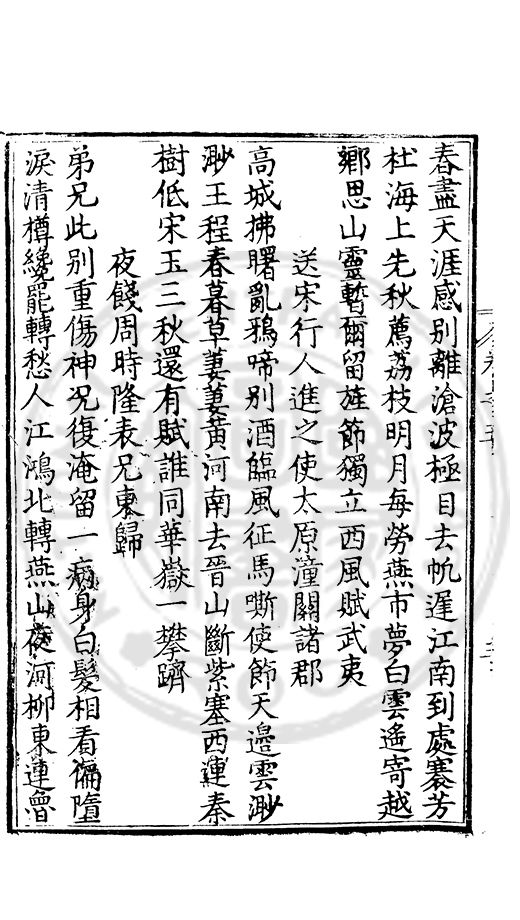 春盡天涯感別離滄波極目去帆遲江南到處褰芳
杜海上先秋薦荔枝明月每勞燕市夢白雲遙寄越
鄉思山靈暫爾留旌節獨立西風賦武夷
送宋行人進之使太原潼關諸郡
高城拂曙亂鴉啼別酒臨風征馬嘶使節天邊雲渺
渺王程春暮草萋萋黃河南去晉山斷紫塞西連秦
樹低宋玉三秋還有賦誰同華嶽一攀躋
夜餞周時隆表兄東歸
弟兄此別重傷神况復淹留一病身白髮相看偏墮
淚清樽纔罷轉愁人江鴻北轉燕山夜河柳東連魯